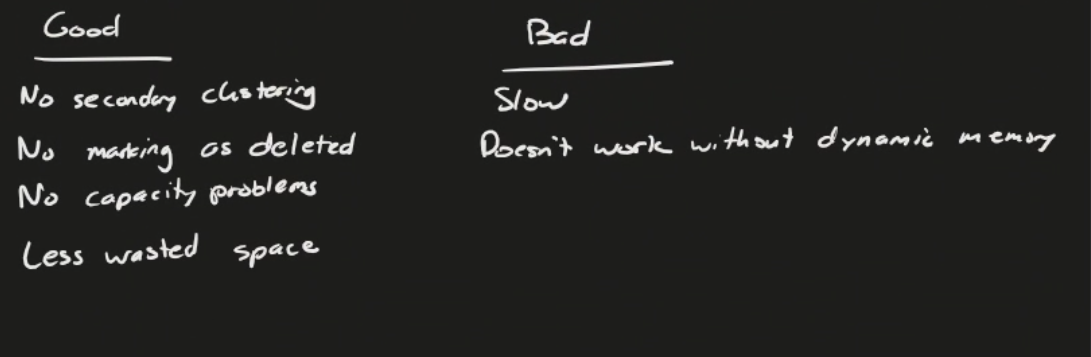 Good
No secondary clustering
No marking as deleted
No capacity problems
Less wasted space
Bad
Slow
Doesn't work without dynamic memory